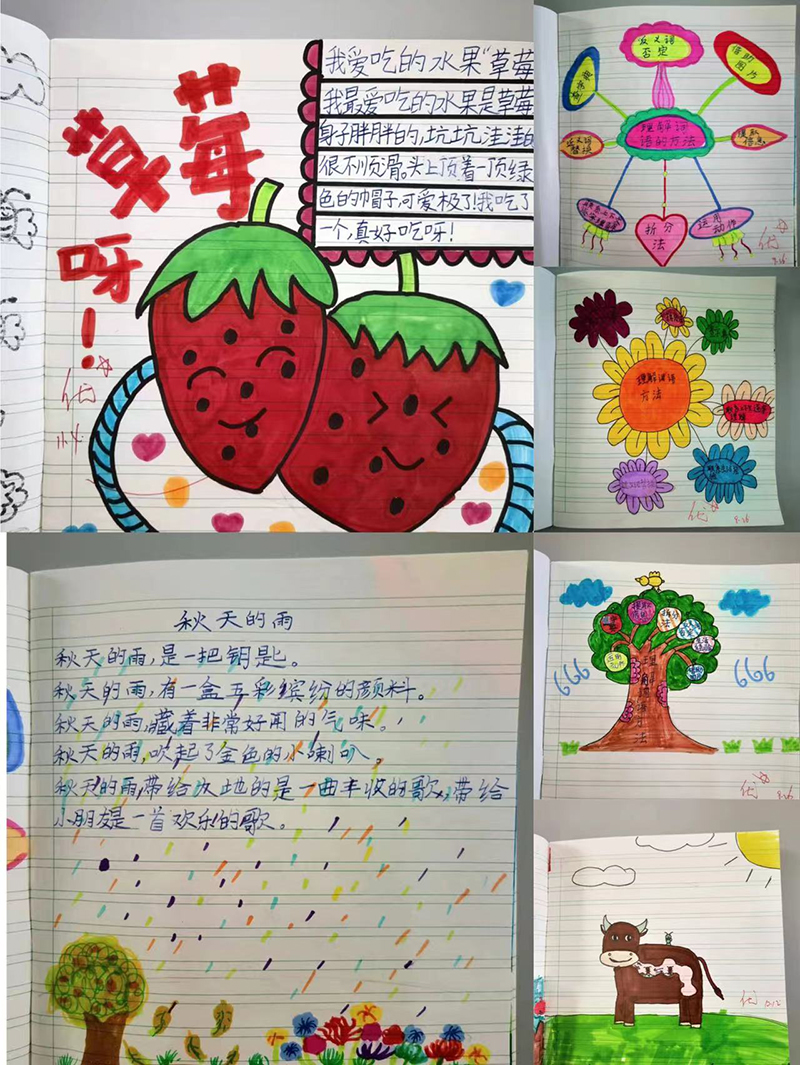 草莓
呀!
我爱吃的水果"草莓
我最爱吃的水果是草莓
身子胖胖的,坑坑洼洼的
很不顺滑。头上顶着一顶绿
色的帽子,可爱极了!我吃了
一个,真好吃呀!
优
反义词
否定
借助
图片
理解词
语的方法
提取
信息
近义词
替换
拆分
法
运用
动作
优
9.16
理解词语
方法
优
9.26
秋天的雨
秋天的雨,是一把钥匙。
秋天的雨,有一盒五彩缤纷的颜料。
秋天的雨,藏着非常好闻的气味。
秋天的雨,吹起了金色的小喇叭。
秋天的雨,带给大地的是一曲丰收的歌,带给
小朋友是一首欢乐的歌。
666
666
提取
信息
拆分
法
理解词语方法
优
9.26
优